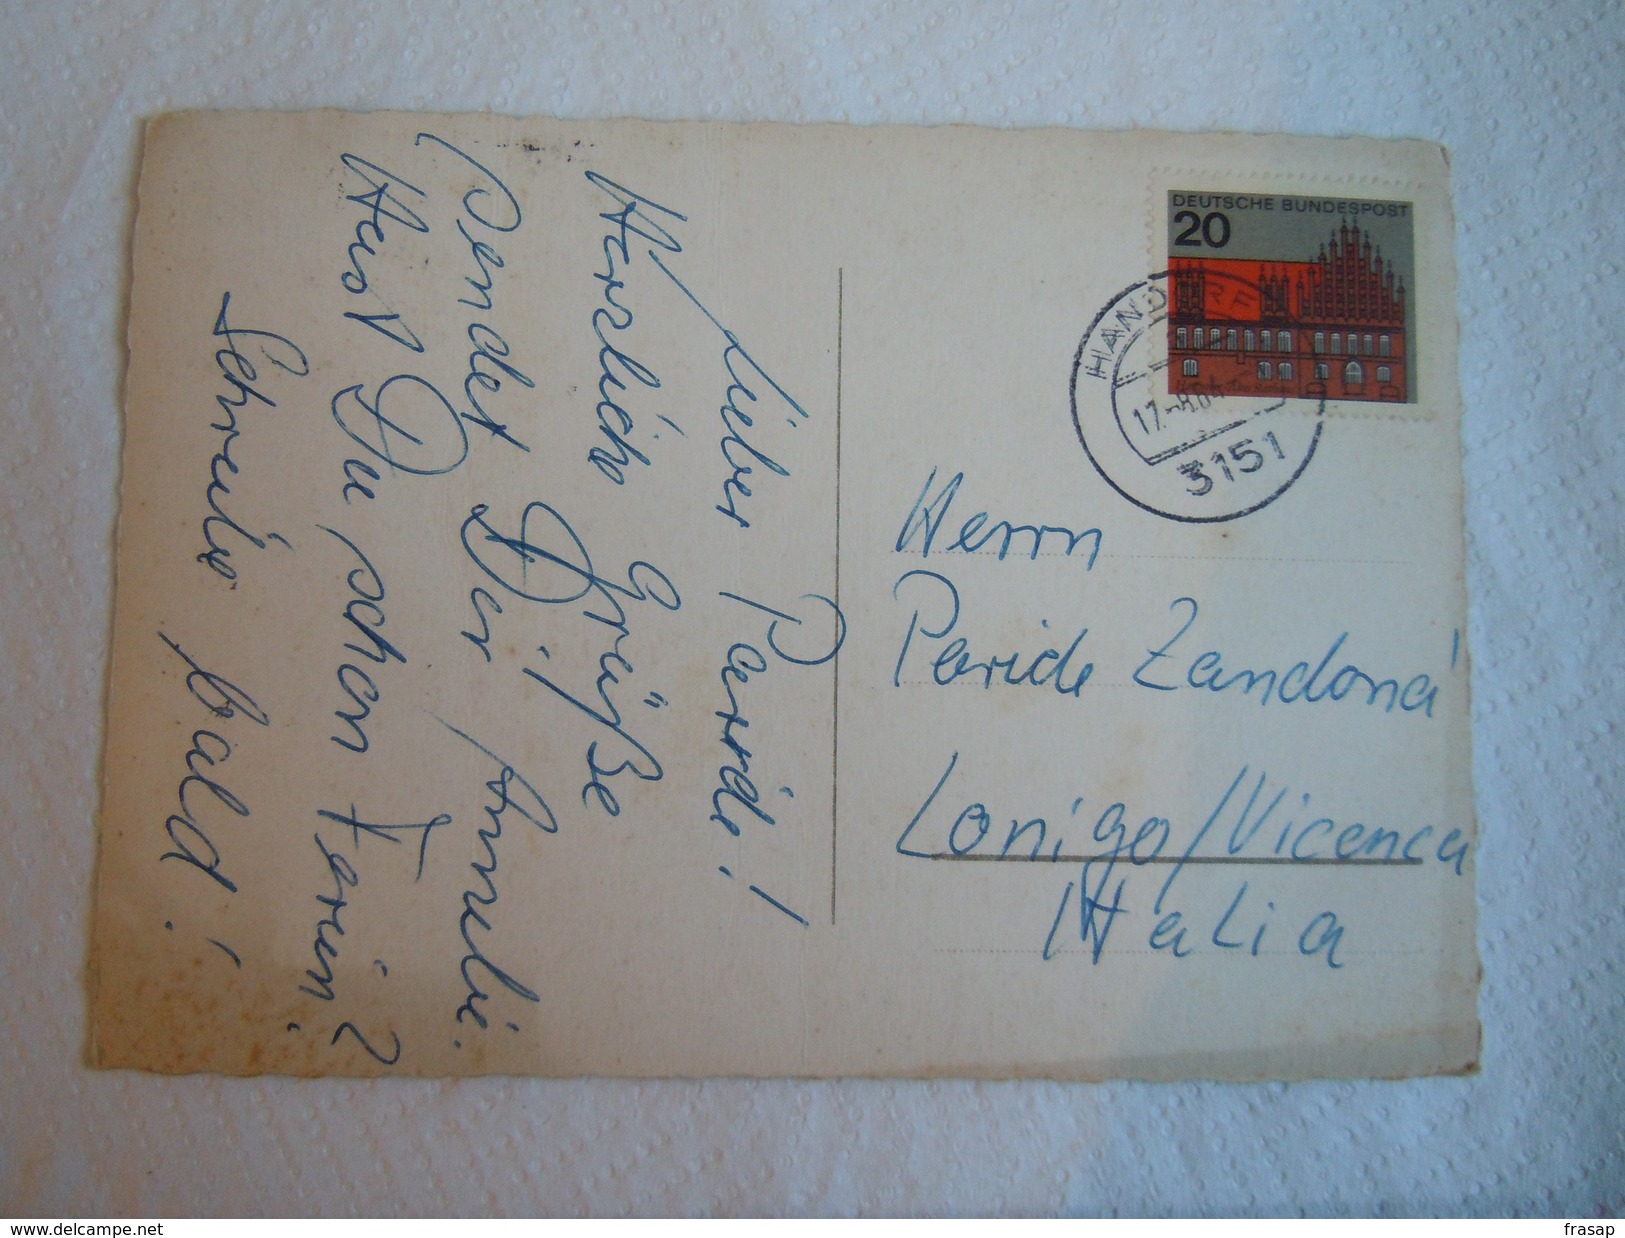 Lieber Paride!
Herzliche Grüße
sendet Dir Amelie.
Hast Du schon Ferien?
Schreibe bald!
DEUTSCHE BUNDESPOST
20
HANDORF
3151
Herrn
Paride Zandoná
Lonigo/Vicenca
Italia
www.delcampe.net
frasap